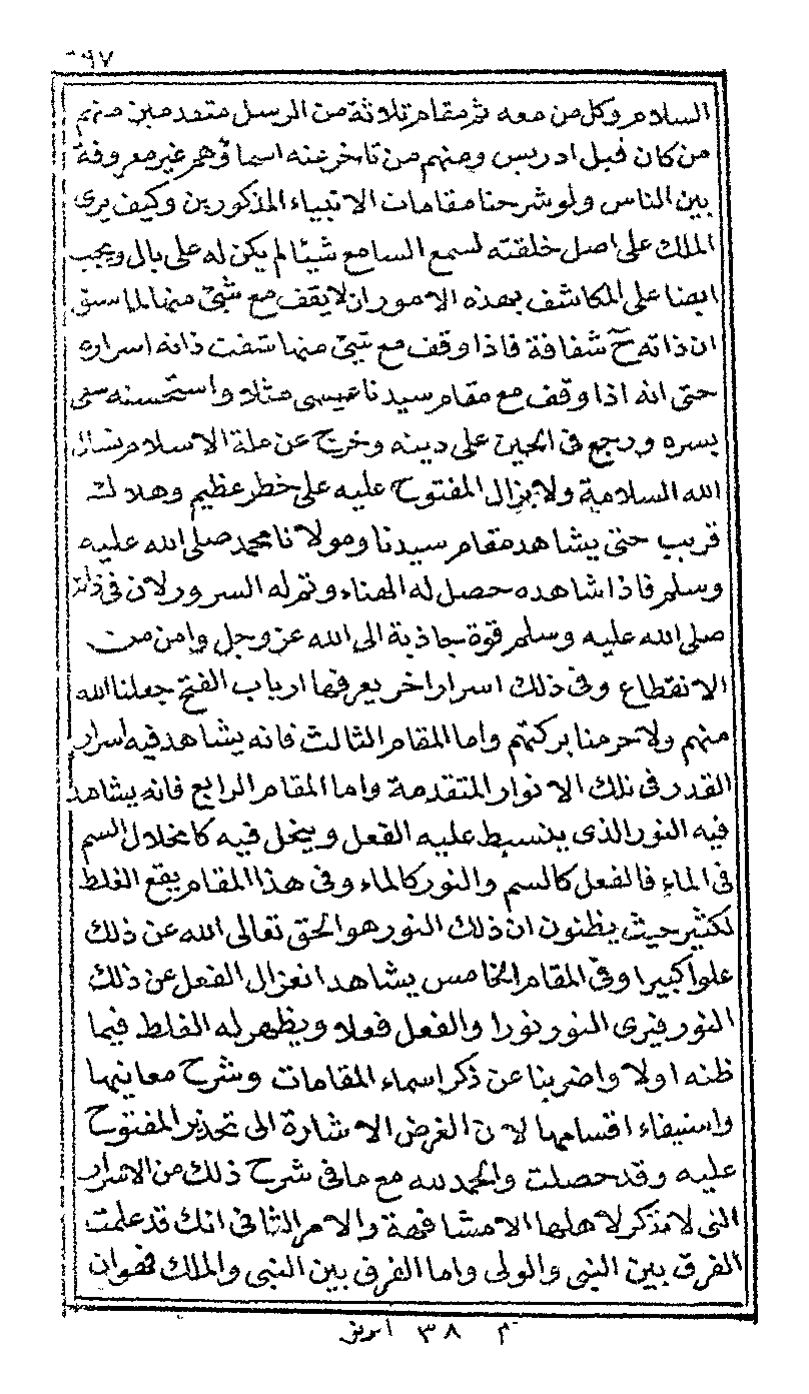 ٢٩٧
السلام وكل من معه ثم مقام ثلاثة من الرسل متقدمين منهم
من كان قبل ادريس ومنهم من تاخر عنه اسماؤهم غير معروفة
بين الناس ولو شرحنا مقامات الانبياء المذكورين وكيف يرى
الملك على اصل خلقته لسمع السامع شيئا لم يكن له على بال ويجب
ايضا على المكاشف بهذه الامور ان لا يقف مع شئ منها لما سبق
ان ذاته ح شفافة فاذا وقف مع شئ منها شفت ذاته اسراره
حتى انه اذا وقف مع مقام سيدنا عيسى مثلا واستحسنه سقى
بسره ورجع فى الحين على دينه وخرج عن ملة الاسلام نسال
الله السلامة ولا يزال المفتوح عليه على خطر عظيم وهلاك
قريب حتى يشاهد مقام سيدنا ومولانا محمد صلى الله عليه
وسلم فاذا شاهده حصل له الهناء وتم له السرور لان فى ذاته
صلى الله عليه وسلم قوة جاذبة الى الله عز وجل وامن من
الانقطاع وفى ذلك اسرار اخر يعرفها ارباب الفتح جعلنا الله
منهم ولا حرمنا بركتهم واما المقام الثالث فانه يشاهد فيه اسرار
القدر فى تلك الانوار المتقدمة واما المقام الرابع فانه يشاهد
فيه النور الذى ينبسط عليه الفعل وينحل فيه كانحلال السم
فى الماء فالفعل كالسم والنور كالماء وفى هذا المقام يقع الغلط
لكثير حيث يظنون ان ذلك النور هو الحق تعالى الله عن ذلك
علوا كبيرا وفى المقام الخامس يشاهد انعزال الفعل عن ذلك
النور فيرى النور نورا والفعل فعلا ويظهر له الغلط فيما
ظنه اولا واضربنا عن ذكر اسماء المقامات وشرح معانيها
واستيفاء اقسامها لان الغرض الاشارة الى تحذير المفتوح
عليه وقد حصلت والحمد لله مع ما فى شرح ذلك من الاسرار
التى لا تذكر لاهلها الا مشافهة والامر الثانى انك قد علمت
الفرق بين النبى والولى واما الفرق بين النبى والملك فهو ان
م ٣٨ ابريز